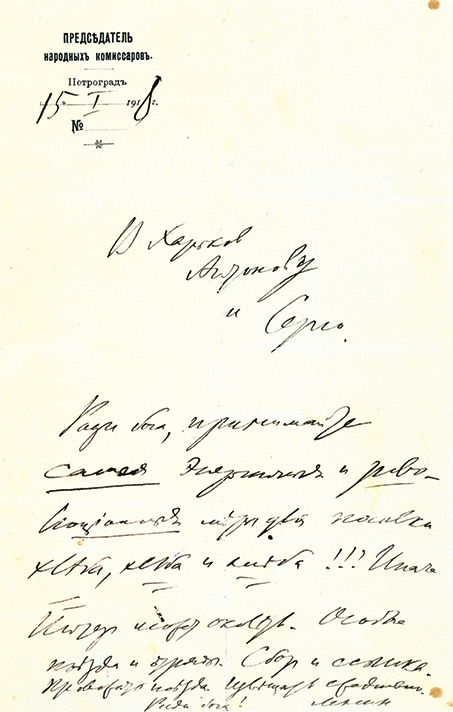 ПРЕДСѢДАТЕЛЬ
народныхъ комиссаровъ.
Петроградъ
15 I 1918 г.
№
В Харьков
Антонову
и Серго.
Ради бога, принимайте
самыя энергичныя и рево-
люціонныя меры для посылки
хлѣба, хлѣба и хлѣба!!! Иначе
Питер может околеть. Особые
поезда и отряды. Сбор и ссыпка.
Провожать поезда. Извещать ежедневно.
Ради бога! Ленин